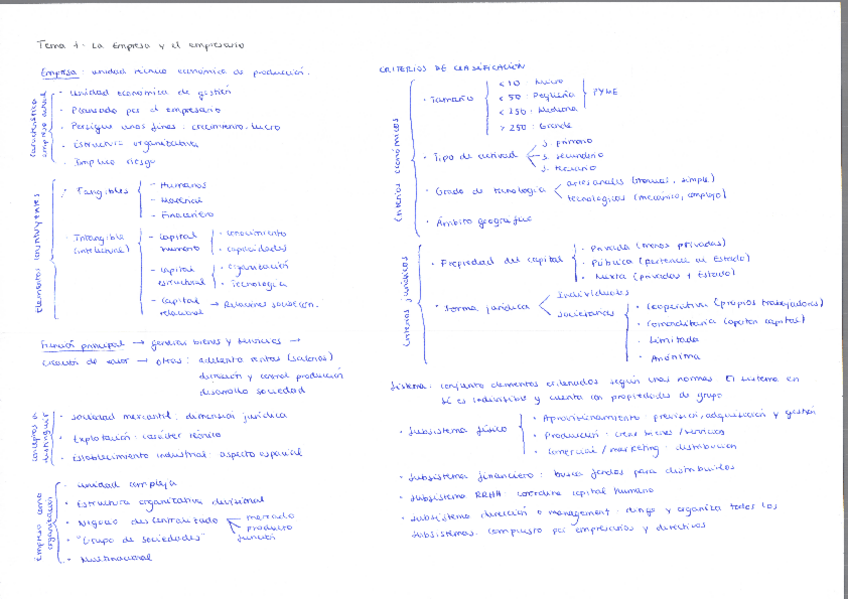 Tema 1. La Empresa y el empresario
Empresa: unidad técnico económica de producción.
Características empresa actual
· Unidad económica de gestión
· Planeado por el empresario
· Persigue unos fines: crecimiento, lucro
· Estructura organizativa
· Implica riesgo
Elementos constituyentes
· Tangibles
- Humanos
- Material
- Financiero
· Intangible (intelectual)
- capital humano
· conocimiento
· capacidades
- capital estructural
· organización
· Tecnología
- capital relacional → Relaciones
Función principal → generar bienes y servicios →
creación de valor → otros: adelanto rentas (salarios)
dirección y control producción
desarrollo sociedad
conceptos a distinguir
· Sociedad mercantil: dimensión jurídica
· Explotación: carácter técnico
· Establecimiento industrial: aspecto espacial
Empresa como organización
· unidad compleja
· Estructura organizativa divisional
· Negocio descentralizado
mercado
producto
función
· "Grupo de sociedades"
· Multinacional
CRITERIOS DE CLASIFICACIÓN
Criterios económicos
· Tamaño
< 10 : Micro
< 50 : Pequeña
< 250 : Mediana
> 250 : Grande
PYME
· Tipo de actividad
S. primario
S. secundario
S. terciario
· Grado de tecnología
artesanales (manual, simple)
tecnológicas (mecánico, complejo)
· Ámbito geográfico
Criterios jurídicos
· Propiedad del capital
· Privada (manos privadas)
· Pública (pertenece al Estado)
· Mixta (privados + Estado)
· Forma jurídica
Individuales
societarias
· Cooperativa (propios trabajadores)
· Comanditaria (aportan capital)
· Limitada
· Anónima
Sistema: conjunto elementos ordenados según unas normas. El sistema en
sí es indivisible y cuenta con propiedades de grupo
· Subsistema físico
· Aprovisionamiento: previsión, adquisición y gestión
· Producción: crear bienes/servicios
· Comercial/marketing: distribución
· Subsistema financiero: busca fondos para distribuirlos
· Subsistema RRHH: coordina capital humano
· Subsistema dirección o management: dirige y organiza todos los
subsistemas. compuesto por empresarios y directivos